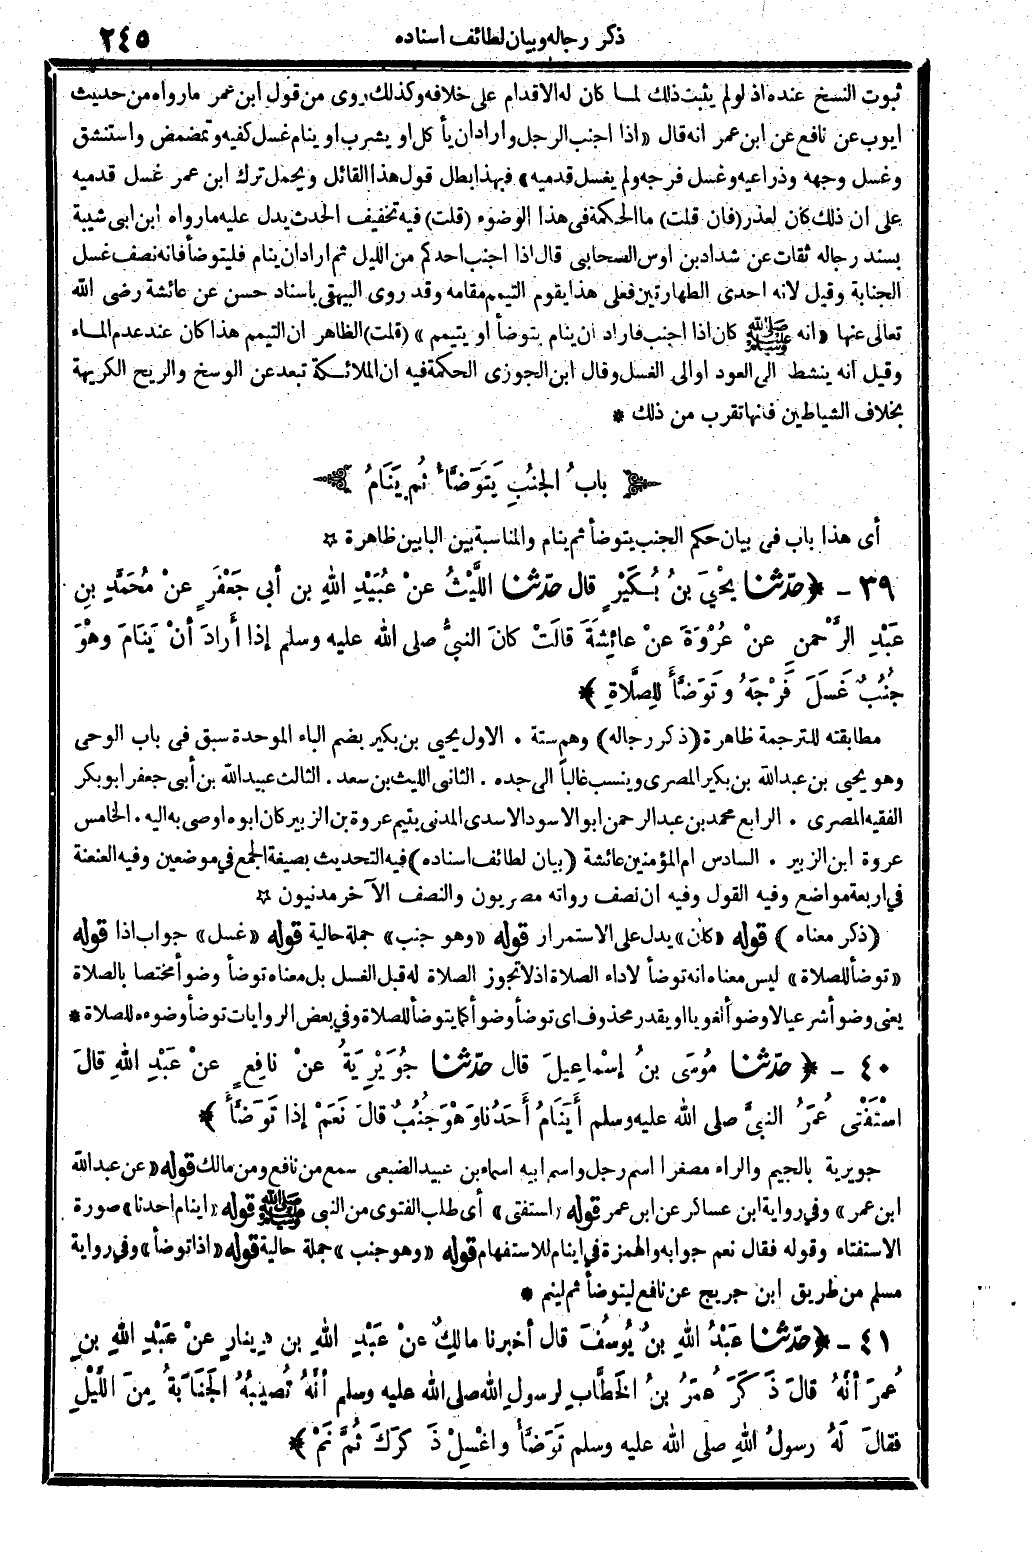 ذكر رجاله وبيان لطائف اسناده ٢٤٥
ثبوت النسخ عنده اذ لو لم يثبت ذلك لما كان له الاقدام على خلافه وكذلك روى من قول ابن عمر مارواه من حديث
ايوب عن نافع عن ابن عمر انه قال «اذا اجنب الرجل وأراد ان يأكل او يشرب او ينام غسل كفيه وتمضمض واستنشق
وغسل وجهه وذراعيه وغسل فرجه ولم يغسل قدميه» فبهذا بطل قول هذا القائل ويحمل ترك ابن عمر غسل قدميه
على ان ذلك كان لعذر (فان قلت) ما الحكمة فى هذا الوضوء (قلت) فيه تخفيف الحدث يدل عليه مارواه ابن ابى شيبة
بسند رجاله ثقات عن شداد بن اوس الصحابى قال اذا اجنب احدكم من الليل ثم اراد ان ينام فليتوضأ فانه نصف غسل
الجنابة وقيل لانه احدى الطهارتين فعلى هذا يقوم التيمم مقامه وقد روى البيهقى باسناد حسن عن عائشة رضى الله
تعالى عنها «انه ﷺ كان اذا اجنب فاراد ان ينام يتوضأ او يتيمم» (قلت) الظاهر ان التيمم هذا كان عند عدم الماء
وقيل انه ينشط الى العود او الى الغسل وقال ابن الجوزى الحكمة فيه ان الملائكة تبعد عن الوسخ والريح الكريهة
بخلاف الشياطين فانها تقرب من ذلك *
باب الجُنُبِ يَتَوَضَّأُ ثُمَّ يَنَامُ
أى هذا باب فى بيان حكم الجنب يتوضأ ثم ينام والمناسبة بين البابين ظاهرة ☆
٣٩ - ﴿حدّثنا يحْيَ بنُ بُكَيْرٍ قال حدّثنا اللَّيْثُ عنْ عُبَيْدِ اللهِ بن أبي جَعْفَرٍ عنْ مُحَمَّدِ بنِ
عَبْدِ الرَّحْمنِ عنْ عُرْوَةَ عنْ عائِشَةَ قالَتْ كانَ النبيُّ صلى الله عليه وسلم إذا أَرادَ أنْ يَنامَ وهْوَ
جُنُبٌ غَسَلَ فَرْجَهُ وتَوَضَّأَ لِلصَّلاةِ﴾
مطابقته للترجمة ظاهرة (ذكر رجاله) وهم ستة . الاول يحيى بن بكير بضم الباء الموحدة سبق فى باب الوحى
وهو يحيى بن عبدالله بن بكير المصرى وينسب غالباً الى جده . الثانى الليث بن سعد . الثالث عبيدالله بن أبى جعفر ابو بكر
الفقيه المصرى . الرابع محمد بن عبد الرحمن ابو الاسود الاسدى المدنى يتيم عروة بن الزبير كان ابوه اوصى به اليه . الخامس
عروة ابن الزبير . السادس ام المؤمنين عائشة (بيان لطائف اسناده) فيه التحديث بصيغة الجمع فى موضعين وفيه العنعنة
فى اربعة مواضع وفيه القول وفيه ان نصف رواته مصريون والنصف الآخر مدنيون ☆
(ذكر معناه) قوله «كان» يدل على الاستمرار قوله «وهو جنب» جملة حالية قوله «غسل» جواب اذا قوله
«توضأ للصلاة» ليس معناه انه توضأ لاداء الصلاة اذ لا تجوز الصلاة له قبل الغسل بل معناه توضأ وضوأ مختصا بالصلاة
يعنى وضوأ شرعيا لا وضوأ لغويا او يقدر محذوف اى توضأ وضوأ كما يتوضأ للصلاة وفي بعض الروايات توضأ وضوءه للصلاة *
٤٠ - ﴿حدّثنا مُوسَى بنُ إسْماعِيلَ قال حدّثنا جُوَيْرِيَةُ عنْ نافِعٍ عنْ عَبْدِ اللهِ قالَ
اسْتَفْتَى عُمَرُ النبيَّ صلى الله عليه وسلم أَيَنَامُ أَحَدُنا وَهْوَ جُنُبٌ قالَ نَعَمْ إذا تَوَضَّأَ﴾
جويرية بالجيم والراء مصغرا اسم رجل واسم ابيه اسماء بن عبيد الضبعى سمع من نافع ومن مالك قوله «عن عبدالله
ابن عمر» وفي رواية ابن عساكر عن ابن عمر قوله «استفتى» أى طلب الفتوى من النبى ﷺ قوله «اينام احدنا» صورة
الاستفتاء وقوله فقال نعم جوابه والهمزة في اينام للاستفهام قوله «وهو جنب» جملة حالية قوله «اذا توضأ» وفي رواية
مسلم من طريق ابن جريج عن نافع ليتوضأ ثم لينم *
٤١ - ﴿حدّثنا عَبْدُ اللهِ بنُ يُوسُفَ قال أخبرنا مالِكٌ عنْ عَبْدِ اللهِ بن دِينارٍ عنْ عَبْدِ اللهِ بنِ
عُمرَ أنَّهُ قالَ ذَكَرَ عُمَرُ بنُ الخَطَّابِ لرسولِ اللهِ صلى الله عليه وسلم أنَّهُ تُصِيبُهُ الجَنَابَةُ مِنَ اللَّيْلِ
فقالَ لَهُ رسولُ اللهِ صلى الله عليه وسلم تَوَضَّأْ واغْسِلْ ذَكَرَكَ ثُمَّ نَمْ﴾